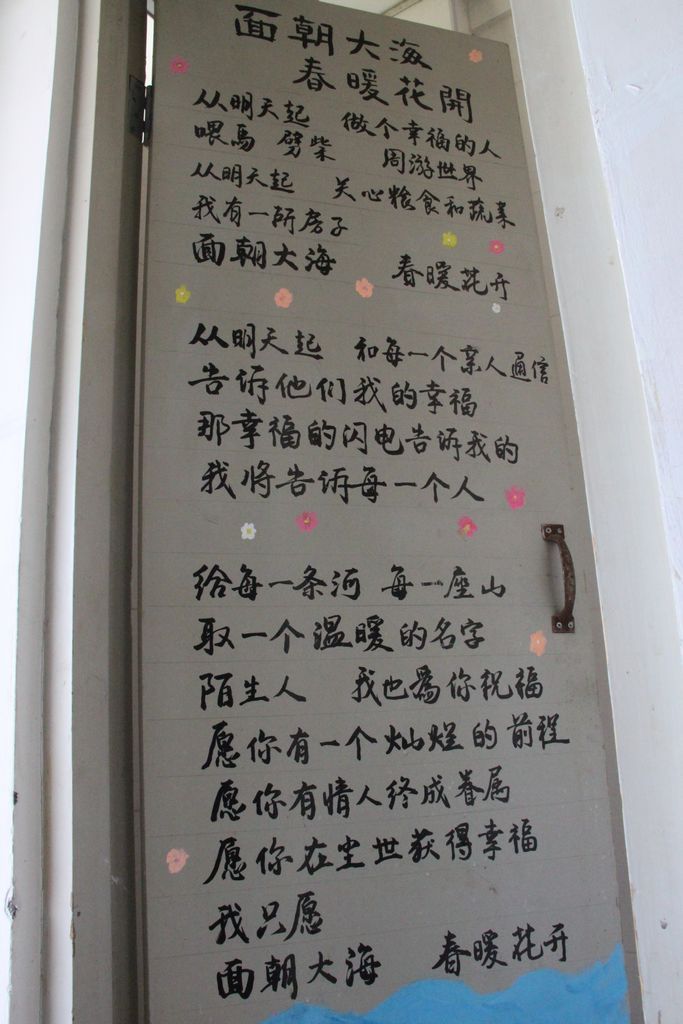 面朝大海
春暖花開
从明天起 做个幸福的人
喂馬 劈柴 周游世界
从明天起 关心粮食和蔬菜
我有一所房子
面朝大海 春暖花开
从明天起 和每一个亲人通信
告诉他们我的幸福
那幸福的闪电告诉我的
我将告诉每一个人
给每一条河 每一座山
取一个温暖的名字
陌生人 我也爲你祝福
愿你有一个灿烂的前程
愿你有情人终成眷属
愿你在尘世获得幸福
我只愿
面朝大海 春暖花开